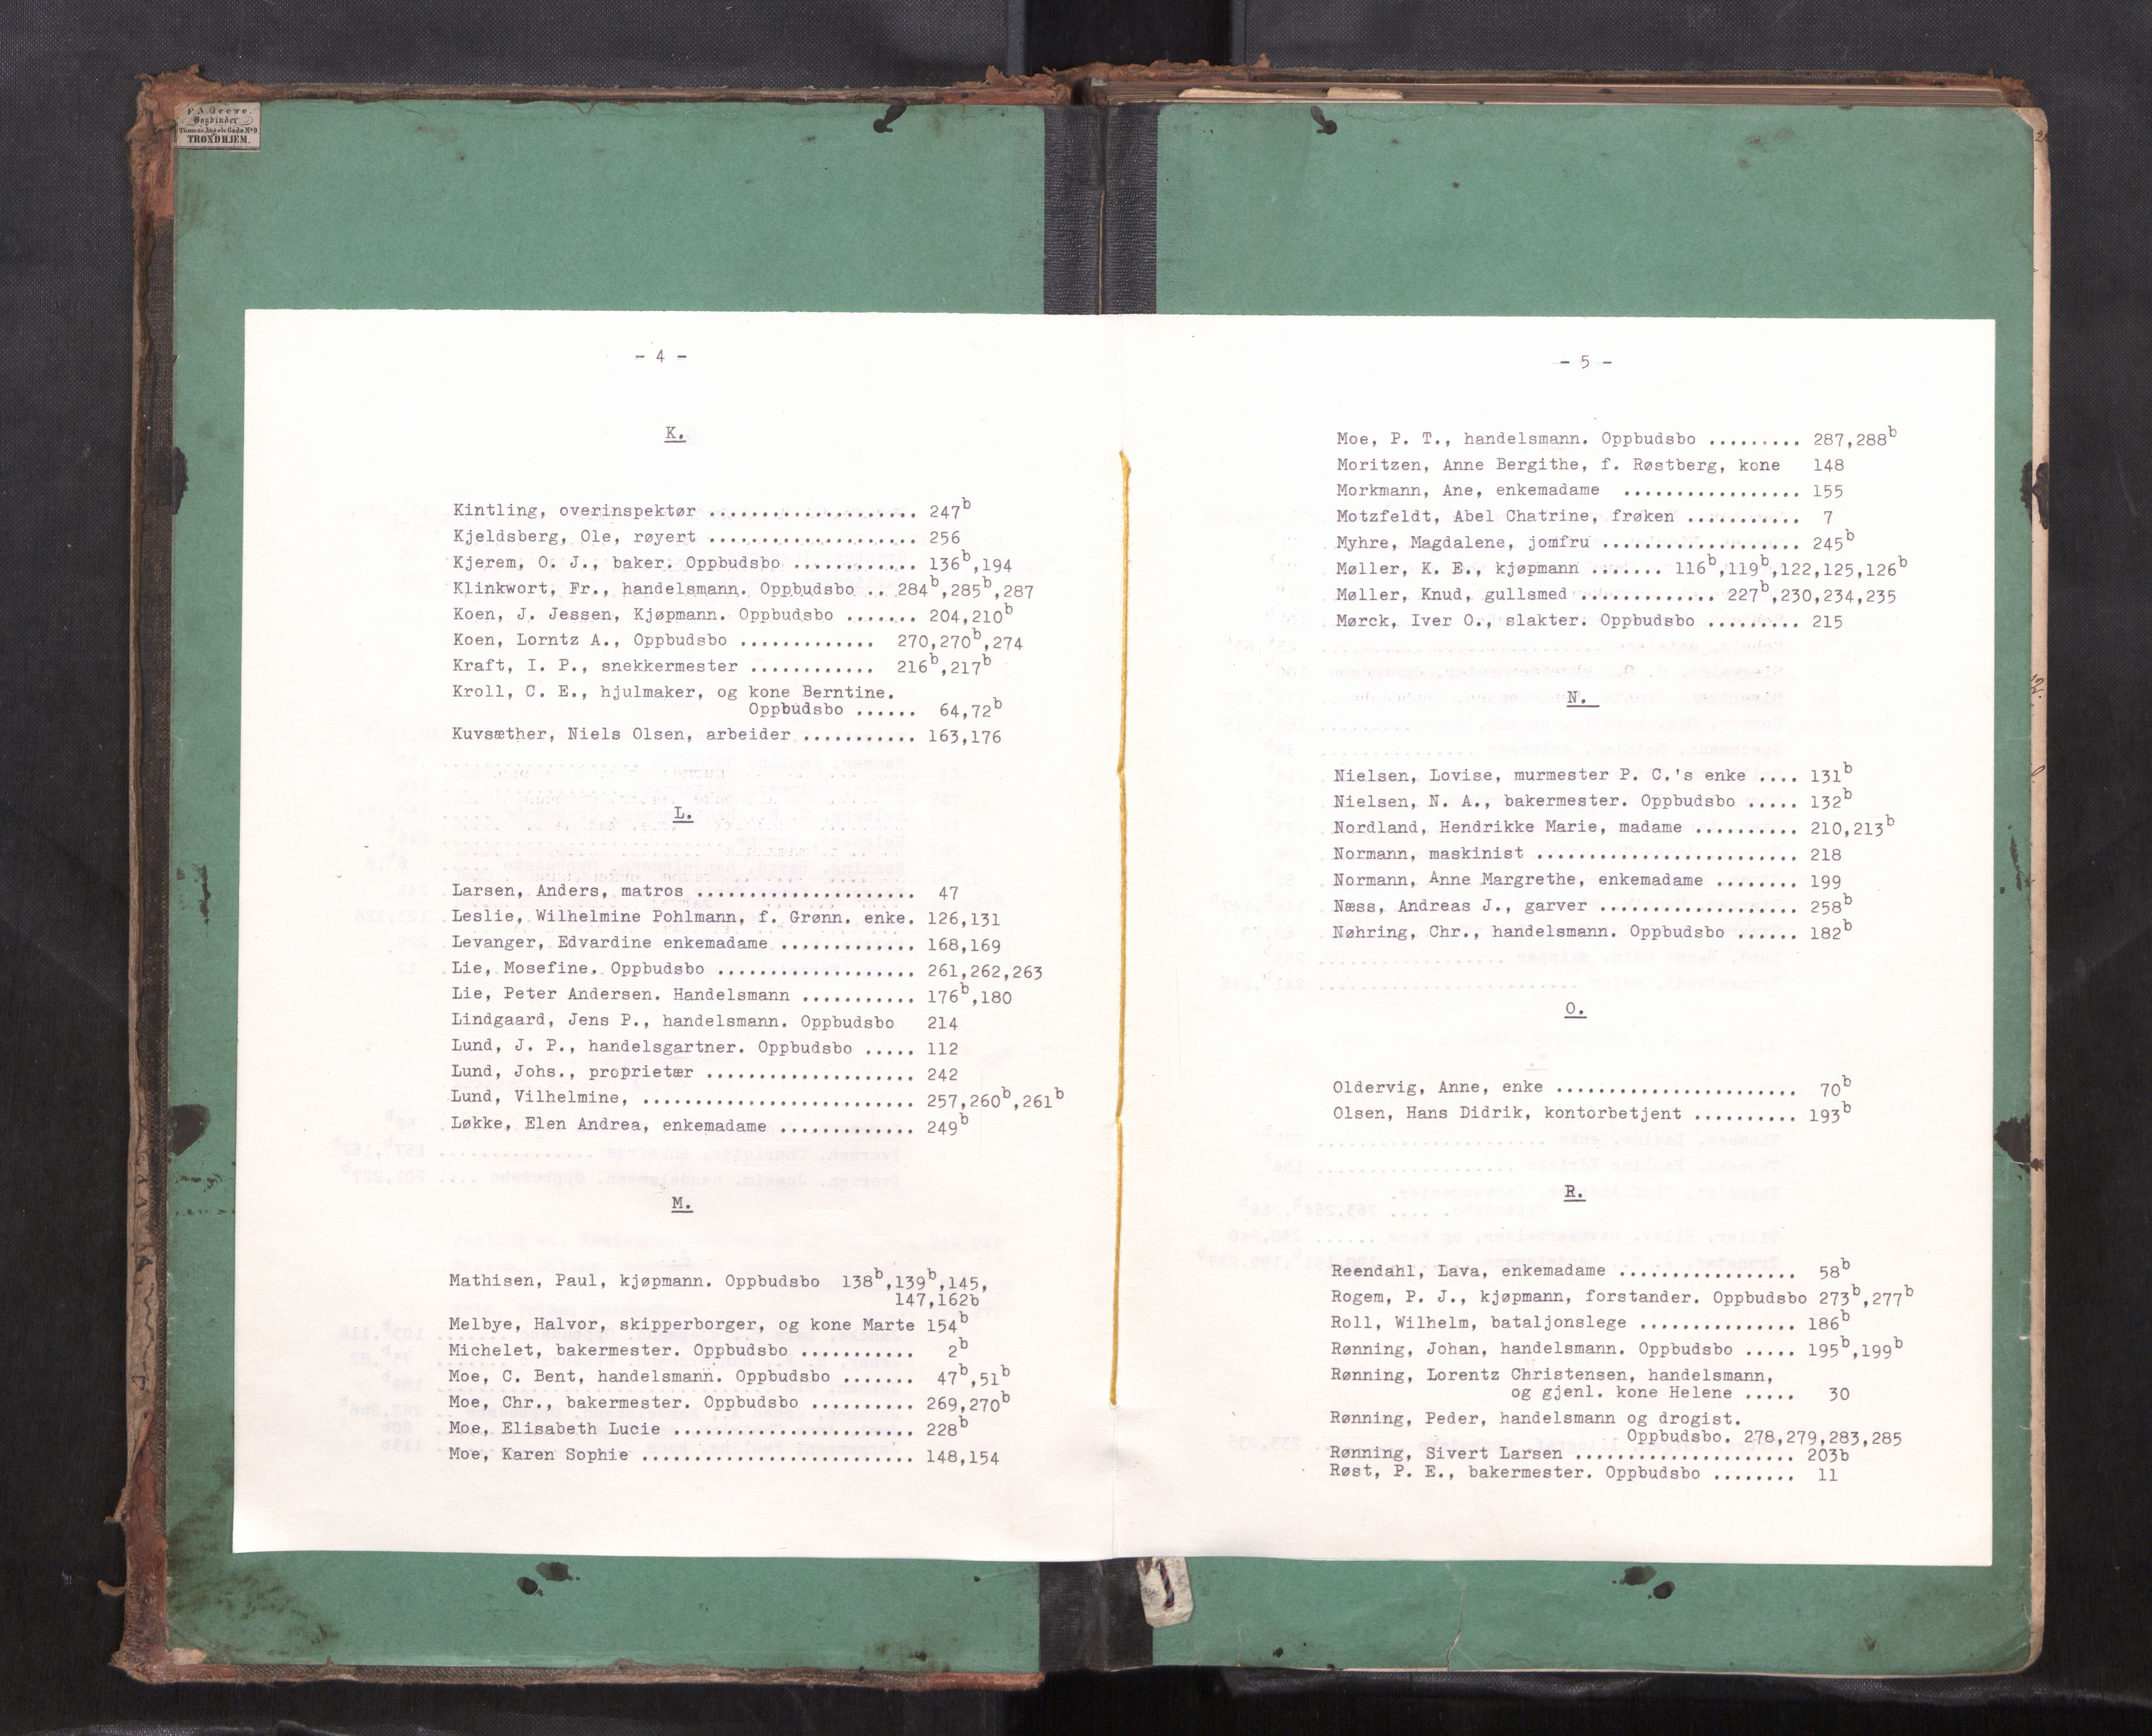 Bogbinder
Thomas Angels Gade No 9
TRONDHJEM.
- 4 -
K.
Kintling, overinspektør .................... 247b
Kjeldsberg, Ole, røyert .................... 256
Kjerem, O. J., baker. Oppbudsbo ............ 136b,194
Klinkwort, Fr., handelsmann. Oppbudsbo .. 284b,285b,287
Koen, J. Jessen, Kjøpmann. Oppbudsbo ....... 204,210b
Koen, Lorntz A., Oppbudsbo ............. 270,270b,274
Kraft, I. P., snekkermester ............ 216b,217b
Kroll, C. E., hjulmaker, og kone Berntine.
Oppbudsbo ...... 64,72b
Kuvsæther, Niels Olsen, arbeider ........... 163,176
L.
Larsen, Anders, matros ..................... 47
Leslie, Wilhelmine Pohlmann, f. Grønn. enke. 126,131
Levanger, Edvardine enkemadame ............. 168,169
Lie, Mosefine. Oppbudsbo ................... 261,262,263
Lie, Peter Andersen. Handelsmann ........... 176b,180
Lindgaard, Jens P., handelsmann. Oppbudsbo 214
Lund, J. P., handelsgartner. Oppbudsbo ..... 112
Lund, Johs., proprietær .................... 242
Lund, Vilhelmine, .......................... 257,260b,261b
Løkke, Elen Andrea, enkemadame ............. 249b
M.
Mathisen, Paul, kjøpmann. Oppbudsbo 138b,139b,145,
147,162b
Melbye, Halvor, skipperborger, og kone Marte 154b
Michelet, bakermester. Oppbudsbo ........... 2b
Moe, C. Bent, handelsmann. Oppbudsbo ....... 47b,51b
Moe, Chr., bakermester. Oppbudsbo .......... 269,270b
Moe, Elisabeth Lucie ....................... 228b
Moe, Karen Sophie .......................... 148,154
- 5 -
Moe, P. T., handelsmann. Oppbudsbo ......... 287,288b
Moritzen, Anne Bergithe, f. Røstberg, kone 148
Morkmann, Ane, enkemadame ................. 155
Motzfeldt, Abel Chatrine, frøken ........... 7
Myhre, Magdalene, jomfru ................... 245b
Møller, K. E., kjøpmann ....... 116b,119b,122,125,126b
Møller, Knud, gullsmed ............. 227b,230,234,235
Mørck, Iver O., slakter. Oppbudsbo ......... 215
N.
Nielsen, Lovise, murmester P. C.'s enke .... 131b
Nielsen, N. A., bakermester. Oppbudsbo ..... 132b
Nordland, Hendrikke Marie, madame .......... 210,213b
Normann, maskinist ......................... 218
Normann, Anne Margrethe, enkemadame ........ 199
Næss, Andreas J., garver ................... 258b
Nøhring, Chr., handelsmann. Oppbudsbo ...... 182b
O.
Oldervig, Anne, enke ....................... 70b
Olsen, Hans Didrik, kontorbetjent .......... 193b
R.
Reendahl, Lava, enkemadame ................. 58b
Rogem, P. J., kjøpmann, forstander. Oppbudsbo 273b,277b
Roll, Wilhelm, bataljonslege ............... 186b
Rønning, Johan, handelsmann. Oppbudsbo ..... 195b,199b
Rønning, Lorentz Christensen, handelsmann,
og gjenl. kone Helene ..... 30
Rønning, Peder, handelsmann og drogist.
Oppbudsbo. 278,279,283,285
Rønning, Sivert Larsen ..................... 203b
Røst, P. E., bakermester. Oppbudsbo ........ 11